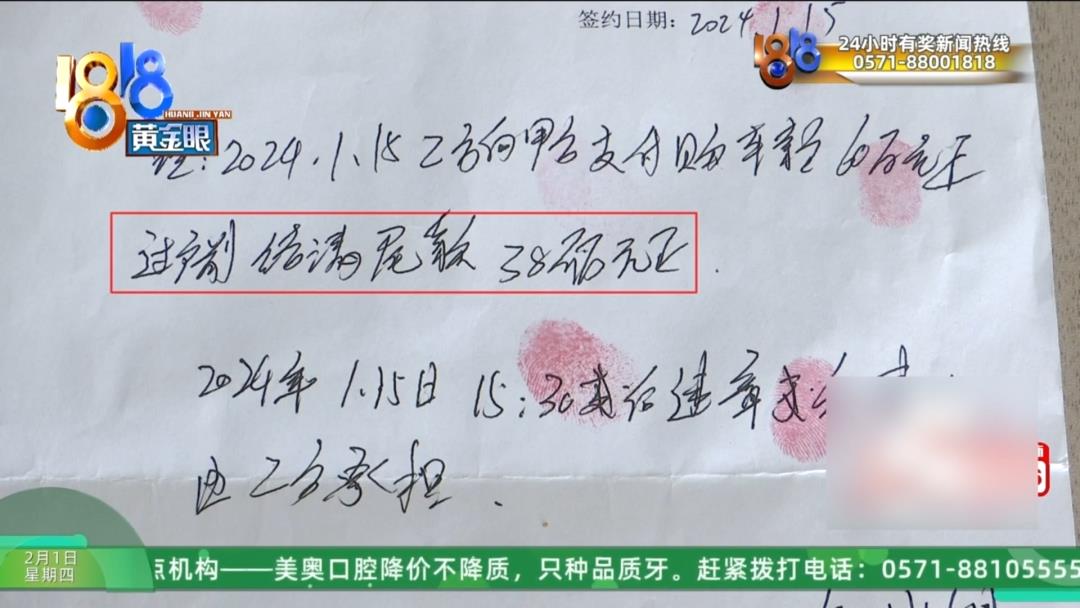 签约日期：2024.1.15
1818
HUANG JIN YAN
黄金眼
1818
24小时有奖新闻热线
0571-88001818
：2024.1.15 乙方向甲方支付购车定 6万元正
过户前 结清尾款 38万元正.
2024年 1.15日 15:30 违章
由乙方承担.
2月1日
星期四
点机构——美奥口腔降价不降质，只种品质牙。赶紧拨打电话：0571-88105555